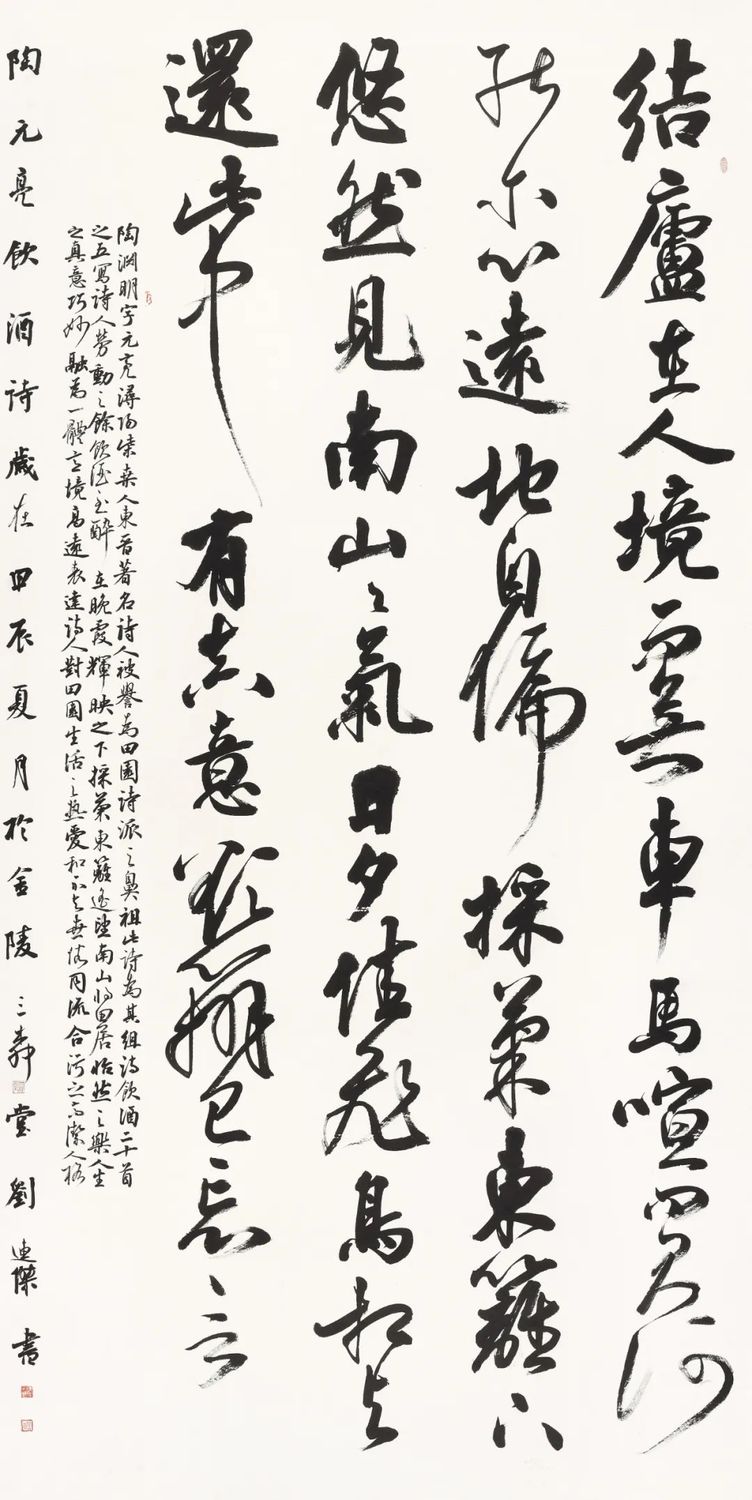 結廬在人境而無車馬喧問君何
能尔心遠地自偏採菊東籬下
悠然見南山〻氣日夕佳飛鳥相与
還此中有真意欲辨已忘言
陶淵明字元亮潯陽柴桑人東晉著名詩人被譽為田園詩派之鼻祖此詩為其組詩飲酒二十首
之五寫詩人勞動之餘飲酒至醉在晚霞輝映之下採菊東籬遙望南山將田居怡然之樂人生
之真意巧妙融為一體意境高遠表達詩人對田園生活之熱愛和不与世俗同流合污之高潔人格
陶元亮飲酒詩歲在甲辰夏月於金陵三壽堂劉連傑書